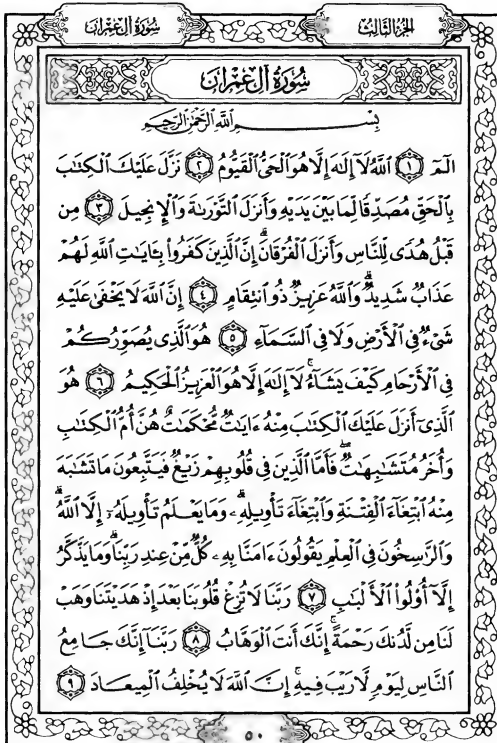 سُورَةُ آلِ عِمْرَان
الجُزْءُ الثَّالِثُ
سُورَةُ آلِ عِمْرَان
بِسْمِ اللَّهِ الرَّحْمَٰنِ الرَّحِيمِ
الٓمٓ ١ ٱللَّهُ لَآ إِلَٰهَ إِلَّا هُوَ ٱلْحَىُّ ٱلْقَيُّومُ ٢ نَزَّلَ عَلَيْكَ ٱلْكِتَٰبَ
بِٱلْحَقِّ مُصَدِّقًا لِّمَا بَيْنَ يَدَيْهِ وَأَنزَلَ ٱلتَّوْرَىٰةَ وَٱلْإِنجِيلَ ٣ مِن
قَبْلُ هُدًى لِّلنَّاسِ وَأَنزَلَ ٱلْفُرْقَانَ ۗ إِنَّ ٱلَّذِينَ كَفَرُوا۟ بِـَٔايَٰتِ ٱللَّهِ لَهُمْ
عَذَابٌ شَدِيدٌ ۗ وَٱللَّهُ عَزِيزٌ ذُو ٱنتِقَامٍ ٤ إِنَّ ٱللَّهَ لَا يَخْفَىٰ عَلَيْهِ
شَىْءٌ فِى ٱلْأَرْضِ وَلَا فِى ٱلسَّمَآءِ ٥ هُوَ ٱلَّذِى يُصَوِّرُكُمْ
فِى ٱلْأَرْحَامِ كَيْفَ يَشَآءُ ۚ لَآ إِلَٰهَ إِلَّا هُوَ ٱلْعَزِيزُ ٱلْحَكِيمُ ٦ هُوَ
ٱلَّذِىٓ أَنزَلَ عَلَيْكَ ٱلْكِتَٰبَ مِنْهُ ءَايَٰتٌ مُّحْكَمَٰتٌ هُنَّ أُمُّ ٱلْكِتَٰبِ
وَأُخَرُ مُتَشَٰبِهَٰتٌ ۖ فَأَمَّا ٱلَّذِينَ فِى قُلُوبِهِمْ زَيْغٌ فَيَتَّبِعُونَ مَا تَشَٰبَهَ
مِنْهُ ٱبْتِغَآءَ ٱلْفِتْنَةِ وَٱبْتِغَآءَ تَأْوِيلِهِۦ ۗ وَمَا يَعْلَمُ تَأْوِيلَهُۥٓ إِلَّا ٱللَّهُ ۗ
وَٱلرَّٰسِخُونَ فِى ٱلْعِلْمِ يَقُولُونَ ءَامَنَّا بِهِۦ كُلٌّ مِّنْ عِندِ رَبِّنَا ۗ وَمَا يَذَّكَّرُ
إِلَّآ أُو۟لُوا۟ ٱلْأَلْبَٰبِ ٧ رَبَّنَا لَا تُزِغْ قُلُوبَنَا بَعْدَ إِذْ هَدَيْتَنَا وَهَبْ
لَنَا مِن لَّدُنكَ رَحْمَةً ۚ إِنَّكَ أَنتَ ٱلْوَهَّابُ ٨ رَبَّنَآ إِنَّكَ جَامِعُ
ٱلنَّاسِ لِيَوْمٍ لَّا رَيْبَ فِيهِ ۚ إِنَّ ٱللَّهَ لَا يُخْلِفُ ٱلْمِيعَادَ ٩
٥٠